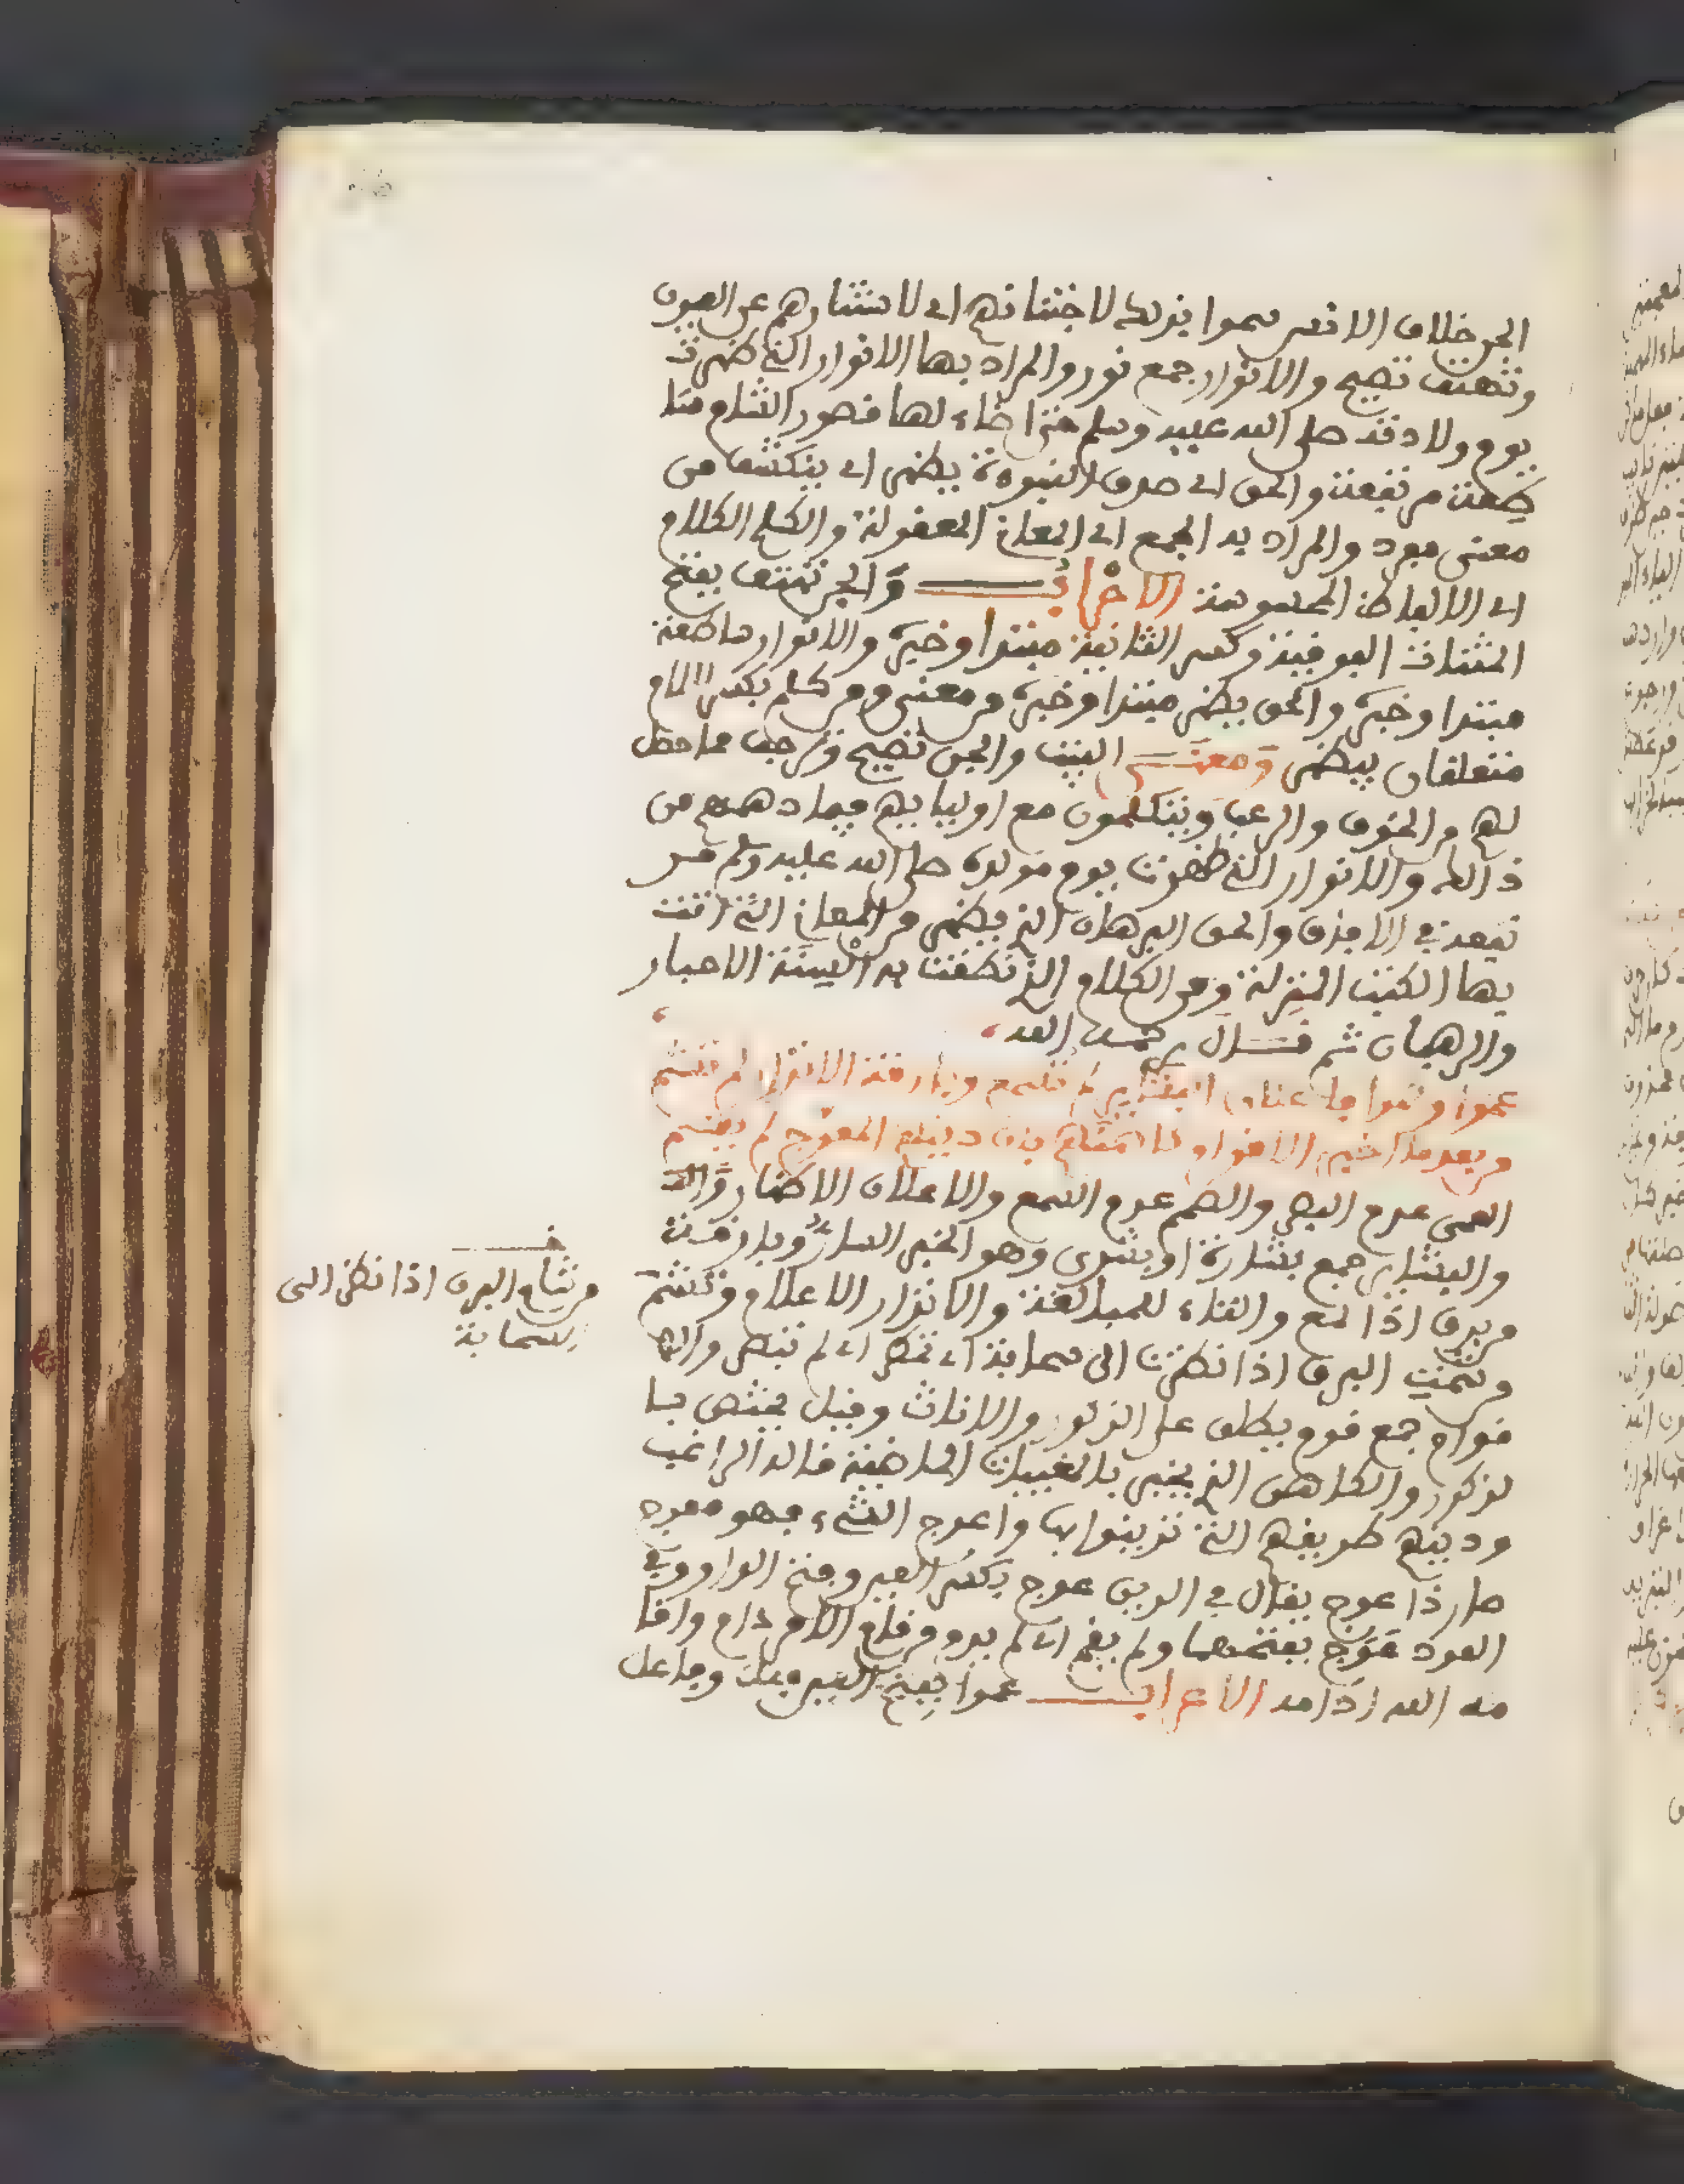 الجن خلاف الانس سموا بذلك لاجتنانهم اي لاستتارهم عن العيون
وتهتف تصيح والانوار جمع نور والمراد بها الانوار التي ظهرت
يوم ولادته صلى الله عليه وسلم حتى اضاء لها قصور الشام
سطعت مرتفعة والحق اي صدق النبوءة يظهر اي ينكشف من
معنى مفرد والمراد به الجمع اي المعاني المعقولة والكلم الكلام
اي الالفاظ المحسوسة الاعراب والجن تهتف بفتح
المثناة الفوقية وكسر الثانية مبتدا وخبره والانوار ساطعة
مبتدا وخبره والحق يظهر مبتدا وخبره ومن معنى ومن كلم بكسر اللام
متعلقان بيظهر ومعنى البيت والجن تصيح وترجف مما حصل
لهم من الخوف والرعب ويتكلمون مع اوليايهم فيما دهمهم من
ذالك والانوار التي ظهرت يوم مولده صلى الله عليه وسلم
في الافق والحق البرهان الذي يظهر من المعاني التي اتت
بها الكتب المنزلة ومن الكلام الذي نطقت به السنة الاحبار
والرهبان ثم قال رحمه الله
عموا وصموا فاعلان البشاير لم تسمع وبارقة الانذار لم تشم
من بعد ما اخبر الاقوام كاهنهم بان دينهم المعوج لم يقم
العمى عدم البصر والصمم عدم السمع والاعلان الاظهار
والبشاير جمع بشارة او بشرى وهو الخبر السار وبارقة
من برق اذا لمع والتاء للمبالغة والانذار الاعلام وتشم
من شمت البرق اذا نظرت الى سحابة اي تمطر اي لم تبصر
قوام جمع قوم يطلق على الذكور والاناث وقيل يختص با
لذكور والكاهن الذي يخبر بالمغيبات الماضية قاله الراغب
ودينهم طريقهم التي تزينوا بها واعوج الشيء فهو معوج
صار ذا عوج يقال في الدين عوج بكسر العين وفتح الواو وفي
العود عوج بفتحهما ولم يقم اي لم يدم من قام الامر دام واقا
مه الله ادامه الاعراب عموا بفتح العين فعل وفاعل
من شام البرق اذا نظر الى
سحابة